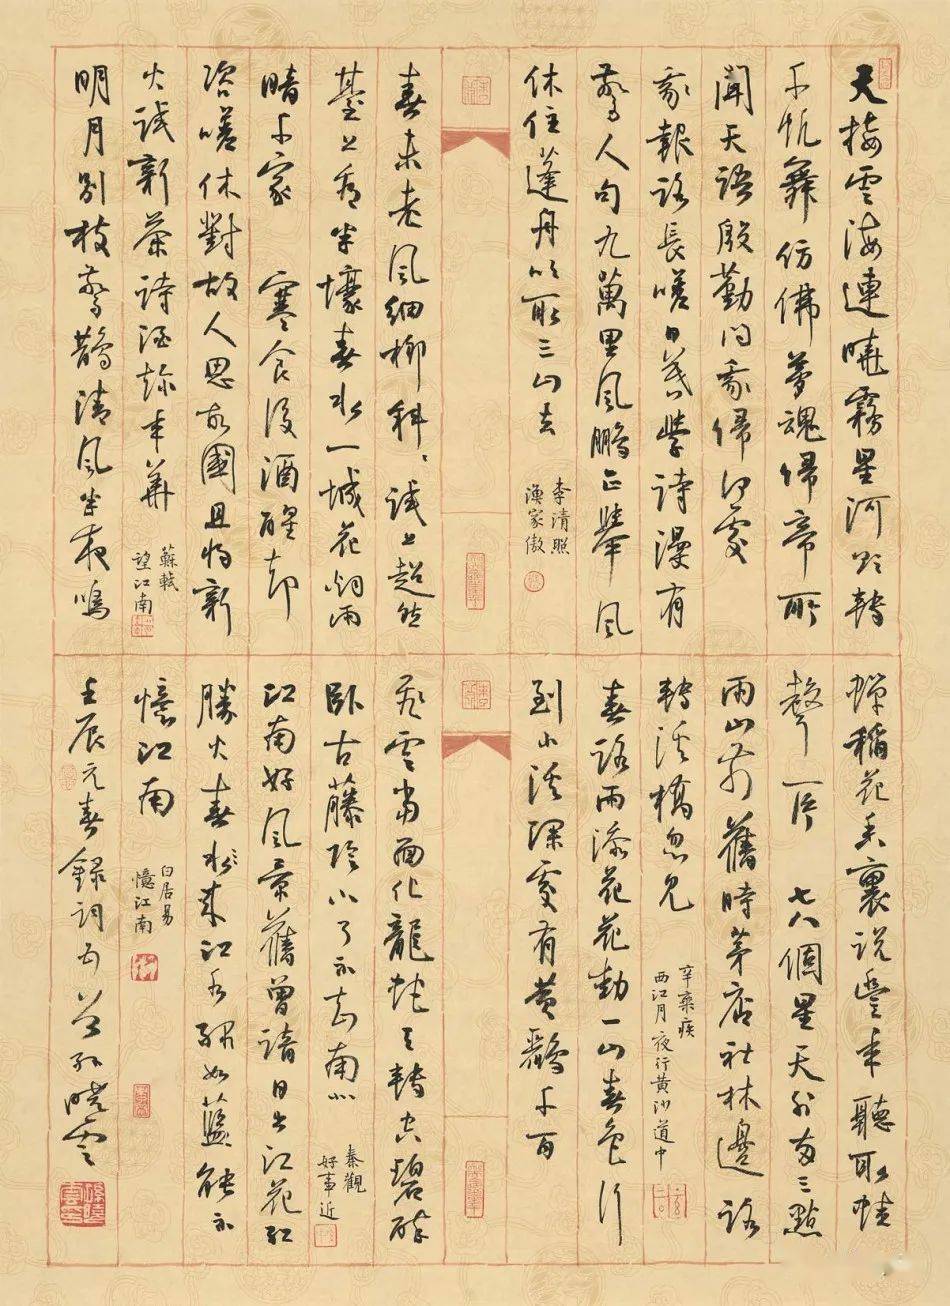 天接雲海連曉霧星河欲轉
千帆舞仿佛夢魂歸帝所
聞天語殷勤問我歸何處
我報路長嗟日暮學詩漫有
驚人句九萬里風鵬正舉風
休住蓬舟吹取三山去
李清照
漁家傲
春未老風細柳斜〻試上超然
臺上看半壕春水一城花烟雨
暗千家 寒食後酒醒却
咨嗟休對故人思故國且將新
火試新茶詩酒趁年華
蘇軾
望江南
明月別枝驚鵲清風半夜鳴
蟬稻花香裏說豐年聽取蛙
聲一片 七八個星天外兩三點
雨山前舊時茅店社林邊路
轉溪橋忽見
辛棄疾
西江月夜行黃沙道中
春路雨添花花動一山春色行
到小溪深處有黃鸝千百
飛雲當面化龍蛇夭轉空碧醉
臥古藤陰下了不知南北
秦觀
好事近
江南好風景舊曾諳日出江花紅
勝火春水來江水綠如藍能不
憶江南
白居易
憶江南
壬辰元春錄詞五首孫曉雲